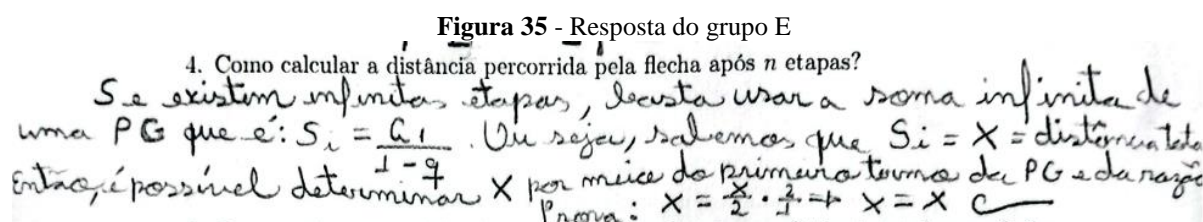 Figura 35 - Resposta do grupo E
4. Como calcular a distância percorrida pela flecha após n etapas?
Se existem infinitas etapas, basta usar a soma infinita de
uma PG que é: Si = a1/1-q. Ou seja, sabemos que Si = X = distância total
Então, é possível determinar X por meio do primeiro termo da PG e da razão
Prova: X = X/2 · 2/1 → X = X